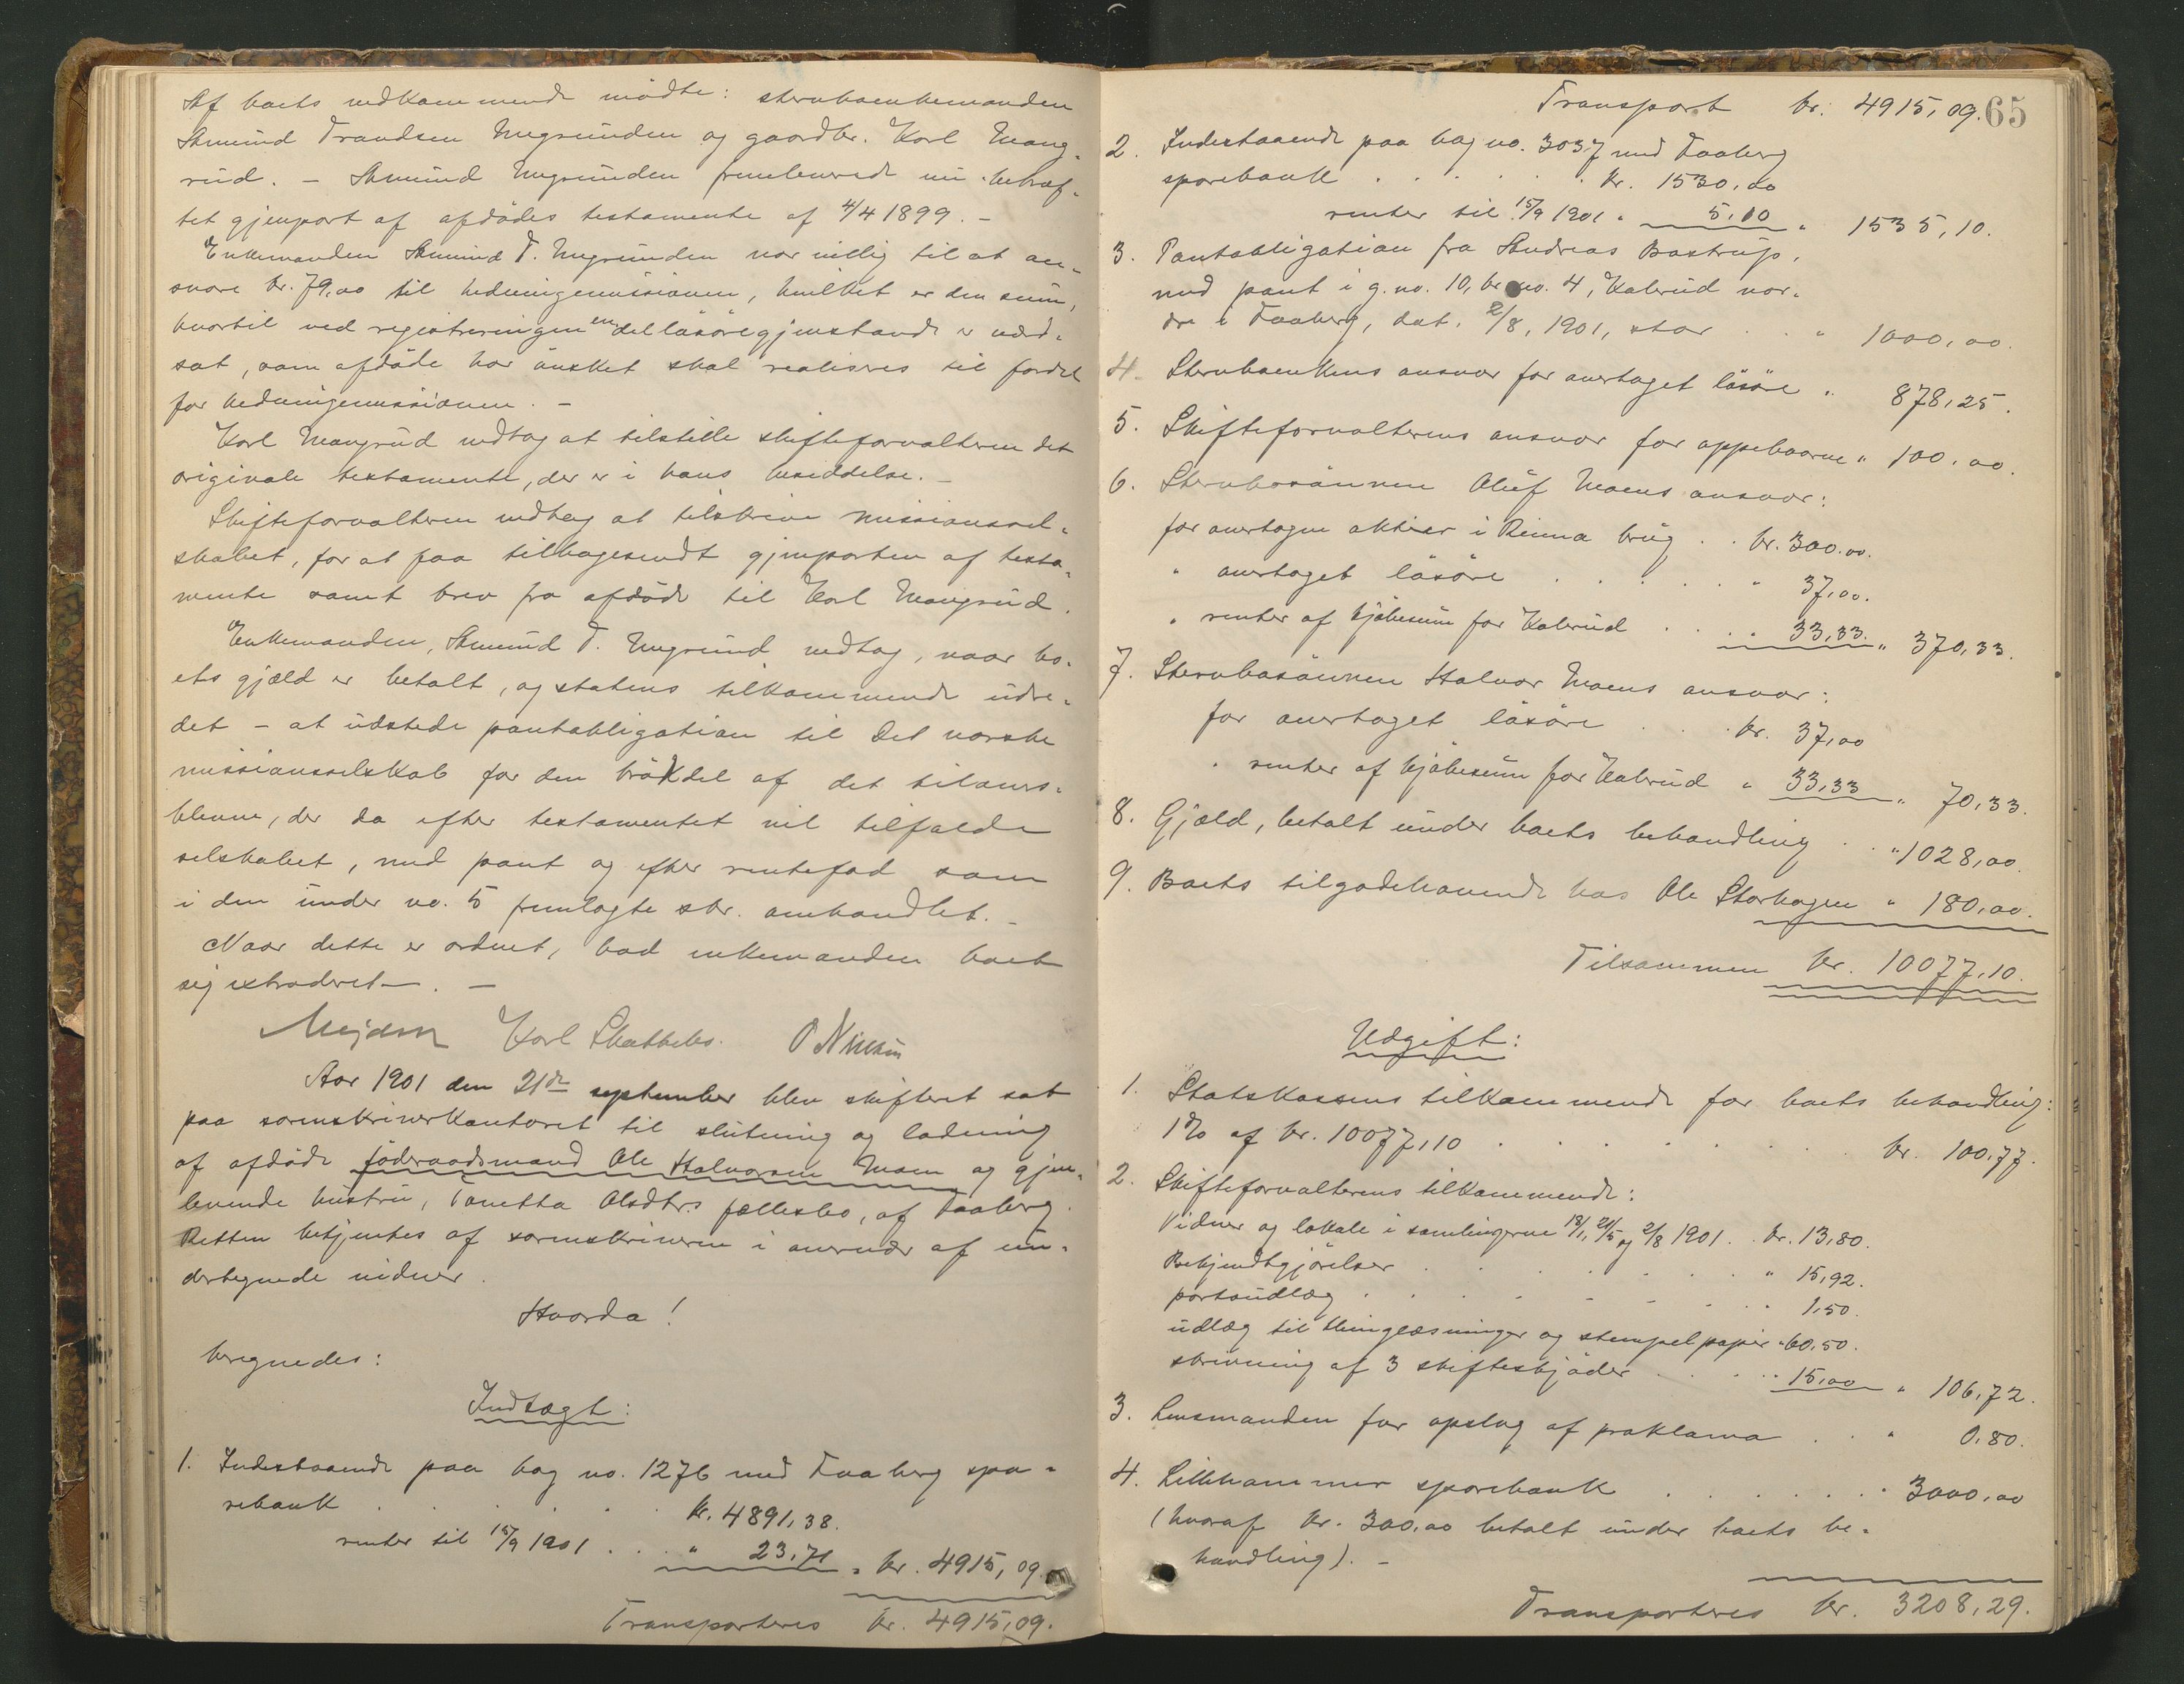 Af boets vedkommende mødte: stervboenkemanden
Amund Trondsen Ungrunden og gaardbr. Karl Maug-
rud. – Amund Ungrunden fremleverede en bekræf-
tet gjenpart af afdødes testamente af 4/4 1899. –
Enkemanden Amund T. Ungrunden var villig til at an-
svare kr. 79,00 til hedningemissionen, hvilket er den sum,
hvortil ved registreringen en del løsøregjenstande er værd-
sat, som afdøde har ønsket skal realiseres til fordel
for hedningemissionen. –
Karl Maugrud vedtog at tilstille skifteforvalteren det
originale testamente, der er i hans besiddelse. –
Skifteforvalteren vedtog at tilskrive missionssel-
skabet, for at faa tilbagesendt gjenparten af testa-
mente samt brev fra afdøde til Karl Maugrud.
Enkemanden, Amund T. Ungrund vedtog, naar bo-
ets gjæld er betalt, og statens tilkommende udre-
det – at udstede pantobligation til Det norske
missionsselskab for den brøkdel af det tilovers-
blevne, der da efter testamentet vil tilfalde
selskabet, med pant og efter rentefod som
i den under no. 5 fremlagte skr. omhandlet. –
Naar dette er ordnet, bad enkemanden boet
sig extraderet. –
Mejdell Karl Skattebo. O Nilsen
Aar 1901 den 21de september blev skifteret sat
paa sorenskriverkontoret til slutning og lodning
af afdøde føderaadsmand Ole Halvorsen Moen og gjen-
levende hustru, Tonetta Olsdtrs. fællesbo, af Faaberg.
Retten betjentes af sorenskriveren i overvær af un-
dertegnede vidner.
Hvorda!
beregnedes:
Indtægt:
1. Indestaaende paa bog no. 1276 med Faaberg spa-
rebank . . . . . kr. 4891,38.
renter til 15/9 1901 . . . " 23,71 = kr. 4915,09.
Transporteres kr. 4915,09.
65
Transport kr. 4915,09.
2. Indestaaende paa bog no. 3037 med Faaberg
sparebank . . . . . . kr. 1530,00
renter til 15/9 1901 " 5,10 " 1535,10.
3. Pantobligation fra Andreas Bostrup,
med pant i g. no. 10, br. no. 4, Kalerud nor-
dre i Faaberg, dat. 2/8, 1901, stor . . " 1000,00.
4. Stervboenkens ansvar for overtaget løsøre " 878,25.
5. Skifteforvalterens ansvar for oppebaarne " 100,00.
6. Stervbosønnen Oluf Moens ansvar:
for overtagne aktier i Reinna brug . . kr. 300.00.
" overtaget løsøre . . . . . " 37,00.
" renter af kjøbesum for Kalerud . . . . 33,33. " 370,33.
7. Stervbosønnen Halvor Moens ansvar:
for overtaget løsøre . . . kr. 37,00
" renter af kjøbesum for Kalerud " 33,33 " 70,33.
8. Gjæld, betalt under boets behandling . . " 1028,00.
9. Boets tilgodehavende hos Ole Storhagen " 180,00.
Tilsammen kr. 10077,10.
Udgift:
1. Statskassens tilkommende for boets behandling:
1% af kr. 10077,10 . . . . . . kr. 100,77.
2. Skifteforvalterens tilkommende:
Vidner og lokale i samlingerne 18/1, 21/5 og 2/8 1901 . . kr. 13,80.
Bekjendtgjørelser . . . . . . . . " 15,92.
portoudlæg . . . . . . . . 1,50.
udlæg til thinglæsninger og stempelpapir " 60,50.
skrivning af 3 skifteskjøder . . . . . 15,00 " 106,72.
3. Lensmanden for opslag af proklama . . " 0,80.
4. Lillehammer sparebank . . . . . . . 3000,00
(hvoraf kr. 300,00 betalt under boets be-
handling). –
Transporteres kr. 3208,29.